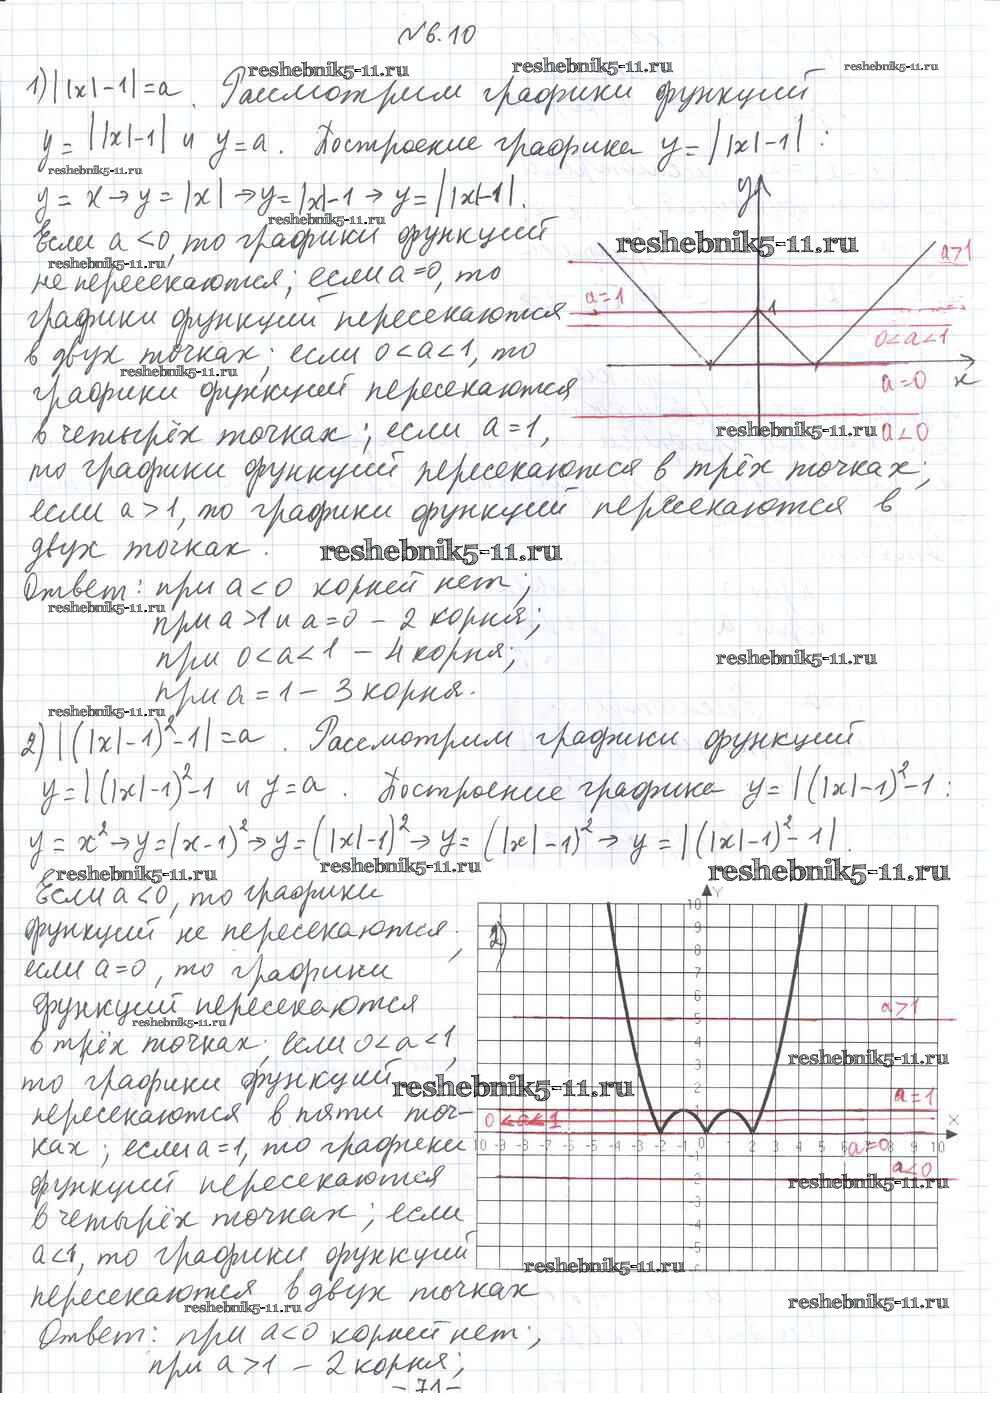 №6.10
reshebnik5-11.ru reshebnik5-11.ru reshebnik5-11.ru
1) ||x|-1|=a. Рассмотрим графики функций
y=||x|-1| и y=a. Построение графика y=||x|-1| :
reshebnik5-11.ru
y=x→y=|x|→y=|x|-1→y=||x|-1|.
reshebnik5-11.ru
Если a<0, то графики функций
reshebnik5-11.ru
не пересекаются; если a=0, то
графики функций пересекаются
в двух точках; если 0<a<1, то
reshebnik5-11.ru
графики функций пересекаются
в четырёх точках; если a=1,
то графики функций пересекаются в трёх точках;
если a>1, то графики функций пересекаются в
двух точках.
reshebnik5-11.ru
y
reshebnik5-11.ru
a>1
a=1
1
0<a<1
x
a=0
reshebnik5-11.ru
a<0
Ответ: при a<0 корней нет;
reshebnik5-11.ru
при a>1 и a=0 – 2 корня;
при 0<a<1 – 4 корня;
reshebnik5-11.ru
при a=1 – 3 корня.
reshebnik5-11.ru
2) |(|x|-1)²-1|=a. Рассмотрим графики функций
y=|(|x|-1)²-1 и y=a. Построение графика y=|(|x|-1)²-1 :
y=x²→y=(x-1)²→y=(|x|-1)²→y=(|x|-1)²→y=|(|x|-1)²-1|.
reshebnik5-11.ru reshebnik5-11.ru reshebnik5-11.ru
Если a<0, то графики
функций не пересекаются;
если a=0, то графики
функций пересекаются
reshebnik5-11.ru
в трёх точках; если 0<a<1,
то графики функций
reshebnik5-11.ru
пересекаются в пяти точ-
ках; если a=1, то графики
функций пересекаются
в четырёх точках; если
a<1, то графики функций
пересекаются в двух точках
reshebnik5-11.ru
2)
Y
10
9
8
7
6
5
4
3
a>1
reshebnik5-11.ru
a=1
0<a<1
X
10 -9 -8 -7 -6 -5 -4 -3 -2 -1 0 1 2 3 4 5 6 7 8 9 10
a=0
a<0
reshebnik5-11.ru
-1
-2
-3
-4
-5
reshebnik5-11.ru
reshebnik5-11.ru
Ответ: при a<0 корней нет;
при a>1 – 2 корня;
–71–